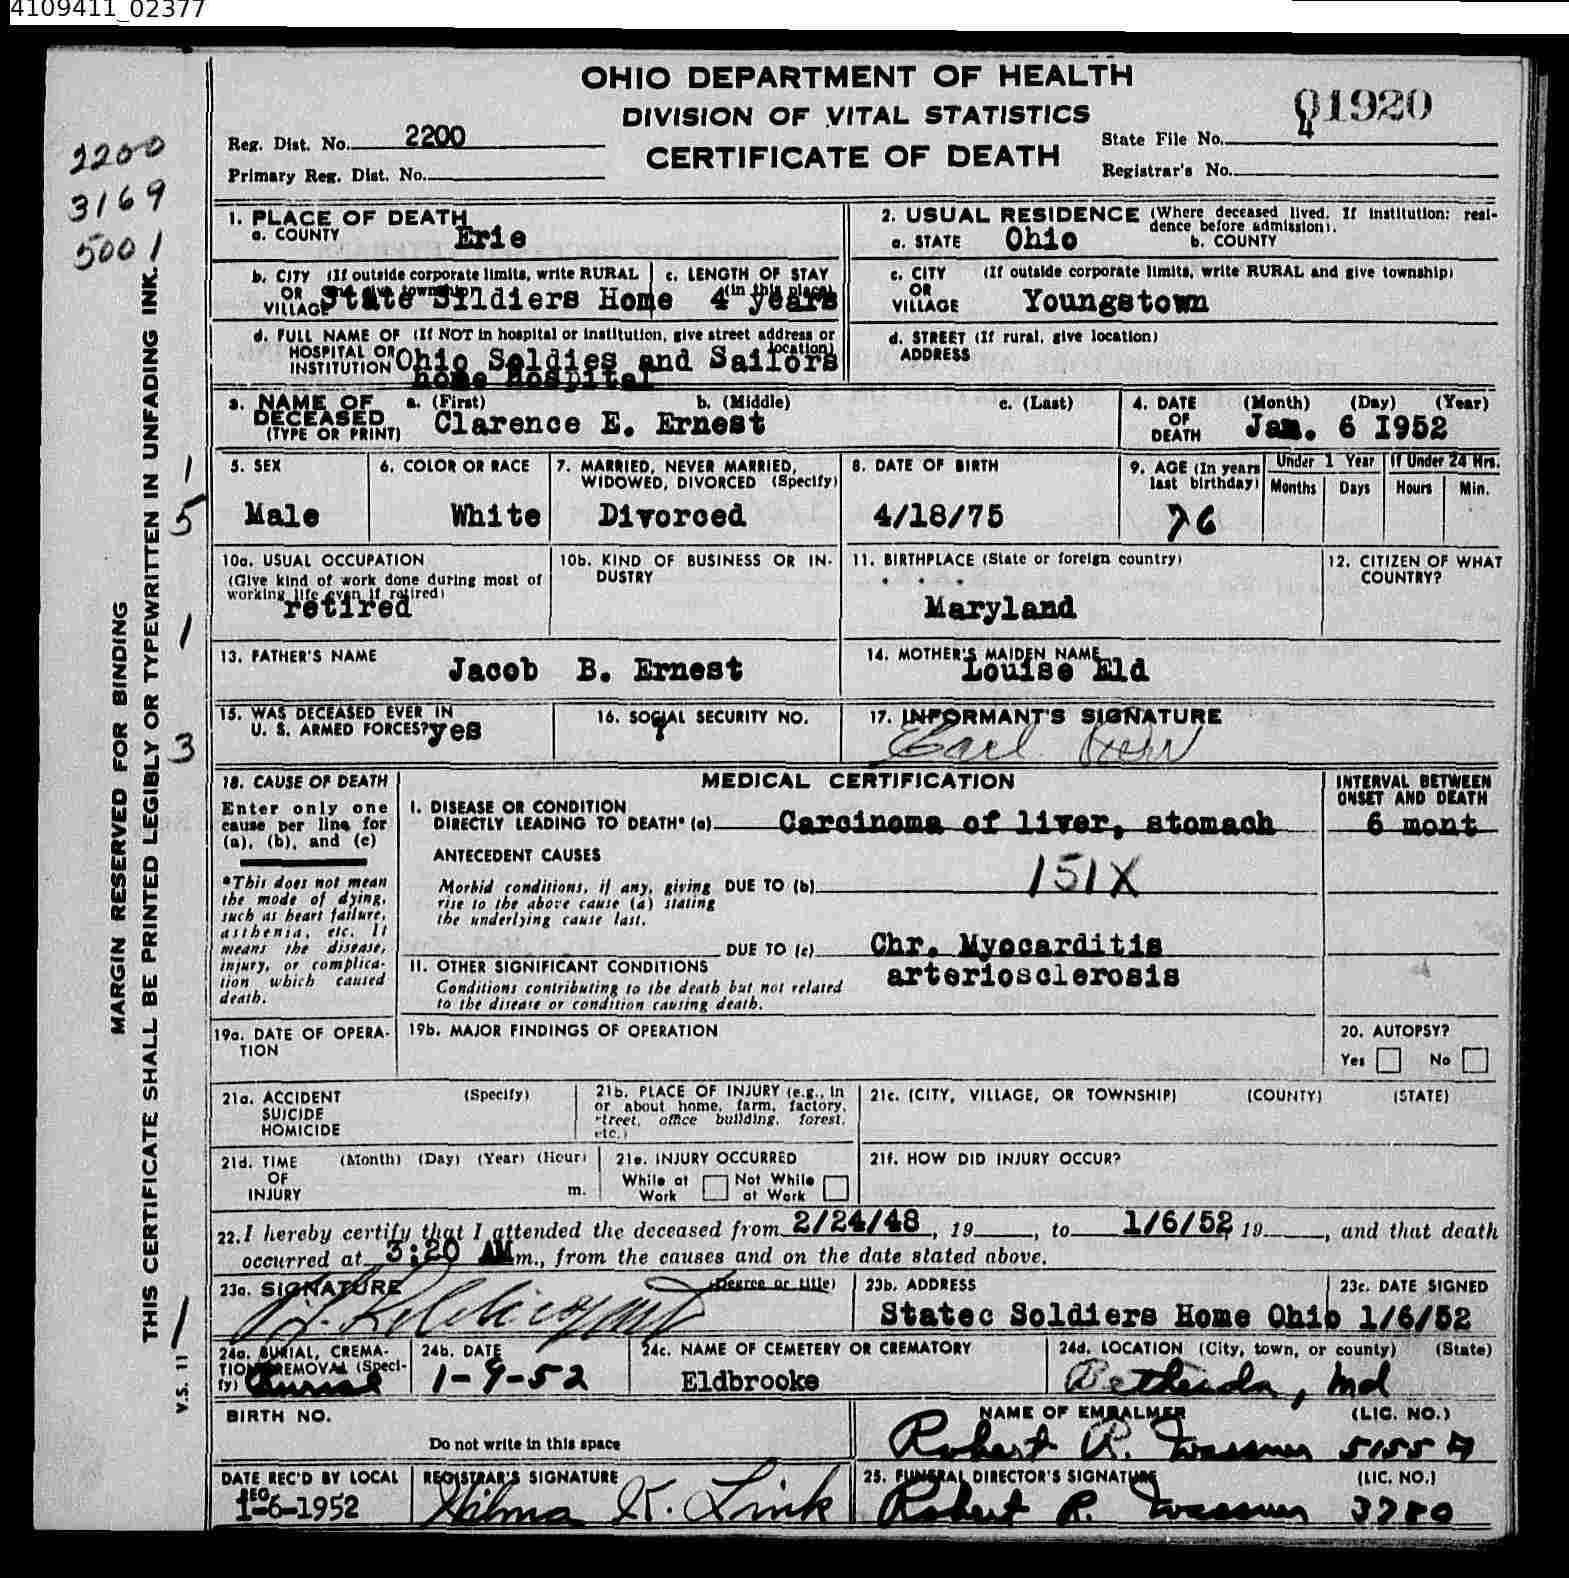 4109411_02377
OHIO DEPARTMENT OF HEALTH
DIVISION OF VITAL STATISTICS
CERTIFICATE OF DEATH
01920
Reg. Dist. No. 2200
State File No. 4
Primary Reg. Dist. No.
Registrar's No.
2200
3169
5001
1. PLACE OF DEATH
a. COUNTY Erie
2. USUAL RESIDENCE (Where deceased lived. If institution: resi-
dence before admission).
a. STATE Ohio b. COUNTY
b. CITY (If outside corporate limits, write RURAL
OR
VILLAGE State Sildiers Home
c. LENGTH OF STAY
(in this place)
4 years
c. CITY (If outside corporate limits, write RURAL and give township)
OR
VILLAGE Youngstown
d. FULL NAME OF (If NOT in hospital or institution, give street address or
location)
HOSPITAL OR
INSTITUTION Ohio Soldies and Sailors
home Hospital
d. STREET (If rural, give location)
ADDRESS
3. NAME OF
DECEASED
(TYPE OR PRINT)
a. (First) b. (Middle) c. (Last)
Clarence E. Ernest
4. DATE (Month) (Day) (Year)
OF
DEATH Jan. 6 1952
5. SEX
Male
6. COLOR OR RACE
White
7. MARRIED, NEVER MARRIED,
WIDOWED, DIVORCED (Specify)
Divorced
8. DATE OF BIRTH
4/18/75
9. AGE (In years
last birthday)
76
Under 1 Year
Months Days
If Under 24 Hrs.
Hours Min.
10a. USUAL OCCUPATION
(Give kind of work done during most of
working life even if retired)
retired
10b. KIND OF BUSINESS OR IN-
DUSTRY
11. BIRTHPLACE (State or foreign country)
Maryland
12. CITIZEN OF WHAT
COUNTRY?
13. FATHER'S NAME
Jacob B. Ernest
14. MOTHER'S MAIDEN NAME
Louise Eld
15. WAS DECEASED EVER IN
U. S. ARMED FORCES? yes
16. SOCIAL SECURITY NO.
?
17. INFORMANT'S SIGNATURE
Earl
18. CAUSE OF DEATH
Enter only one
cause per line for
(a), (b), and (c)
*This does not mean
the mode of dying,
such as heart failure,
asthenia, etc. It
means the disease,
injury, or complica-
tion which caused
death.
MEDICAL CERTIFICATION
INTERVAL BETWEEN
ONSET AND DEATH
I. DISEASE OR CONDITION
DIRECTLY LEADING TO DEATH* (a) Carcinoma of liver, stomach
6 mont
ANTECEDENT CAUSES
Morbid conditions, if any, giving
rise to the above cause (a) stating
the underlying cause last.
DUE TO (b) 151X
DUE TO (c) Chr. Myocarditis
II. OTHER SIGNIFICANT CONDITIONS
arteriosclerosis
Conditions contributing to the death but not related
to the disease or condition causing death.
19a. DATE OF OPERA-
TION
19b. MAJOR FINDINGS OF OPERATION
20. AUTOPSY?
Yes No
21a. ACCIDENT (Specify)
SUICIDE
HOMICIDE
21b. PLACE OF INJURY (e.g., in
or about home, farm, factory,
street, office building, forest,
etc.)
21c. (CITY, VILLAGE, OR TOWNSHIP) (COUNTY) (STATE)
21d. TIME (Month) (Day) (Year) (Hour)
OF
INJURY m.
21e. INJURY OCCURRED
While at Work
Not While at Work
21f. HOW DID INJURY OCCUR?
22. I hereby certify that I attended the deceased from 2/24/48, 19 , to 1/6/52, 19 , and that death
occurred at 3:20 AM m., from the causes and on the date stated above.
23a. SIGNATURE (Degree or title)
23b. ADDRESS
Statec Soldiers Home Ohio
23c. DATE SIGNED
1/6/52
24a. BURIAL, CREMA-
TION, REMOVAL (Speci-
fy) Burial
24b. DATE
1-9-52
24c. NAME OF CEMETERY OR CREMATORY
Eldbrooke
24d. LOCATION (City, town, or county) (State)
Bethesda, Md
BIRTH NO.
Do not write in this space
NAME OF EMBALMER (LIC. NO.)
Robert R. 5155 A
DATE REC'D BY LOCAL
REG.
1-6-1952
REGISTRAR'S SIGNATURE
Hilma K. Link
25. FUNERAL DIRECTOR'S SIGNATURE (LIC. NO.)
Robert R. 3780
MARGIN RESERVED FOR BINDING
THIS CERTIFICATE SHALL BE PRINTED LEGIBLY OR TYPEWRITTEN IN UNFADING INK.
V.S. 11
1
5
1
3
1